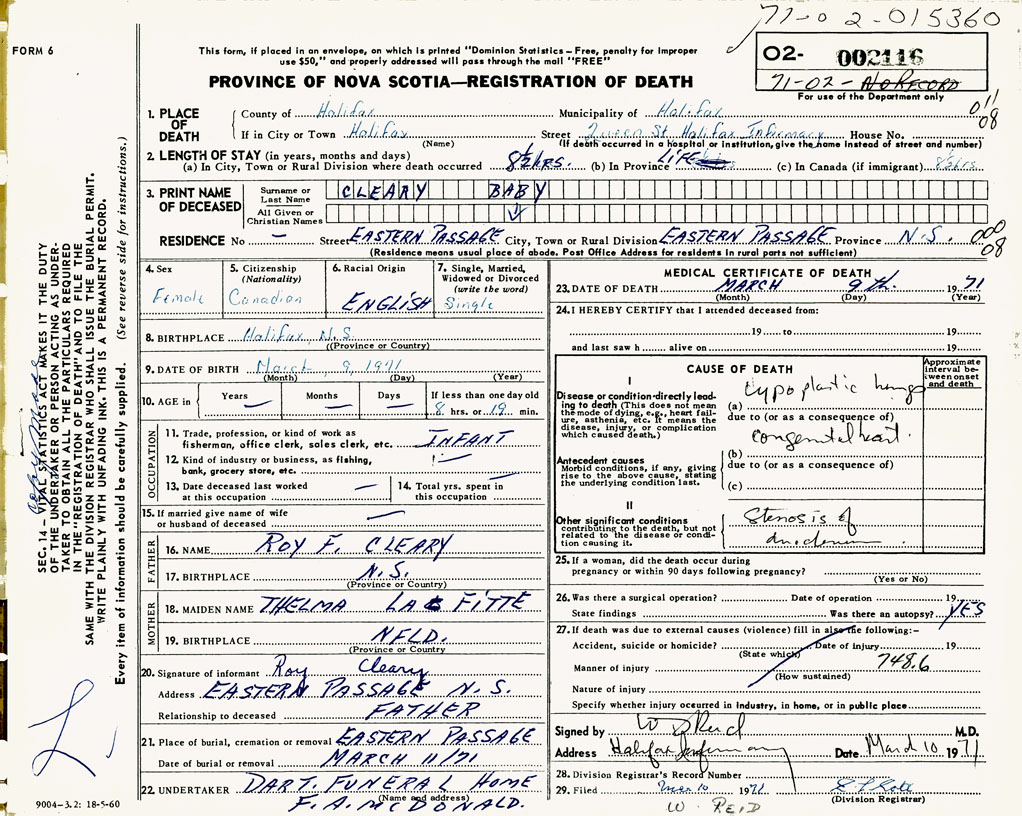 71-02-015360
FORM 6
This form, if placed in an envelope, on which is printed "Dominion Statistics – Free, penalty for improper
use $50," and properly addressed will pass through the mail "FREE"
02- 002116
71-02- NO RECORD
For use of the Department only
PROVINCE OF NOVA SCOTIA—REGISTRATION OF DEATH
011
08
1. PLACE OF DEATH
County of Halifax Municipality of Halifax
If in City or Town Halifax Street Queen St. Halifax Infirmary House No.
(Name) (If death occurred in a hospital or institution, give the name instead of street and number)
2. LENGTH OF STAY (in years, months and days)
(a) In City, Town or Rural Division where death occurred 8½ hrs. (b) In Province LIFE (c) In Canada (if immigrant) 8½ hrs.
3. PRINT NAME OF DECEASED
Surname or Last Name CLEARY BABY
All Given or Christian Names
RESIDENCE No — Street EASTERN PASSAGE City, Town or Rural Division EASTERN PASSAGE Province N.S.
000
08
(Residence means usual place of abode. Post Office Address for residents in rural parts not sufficient)
4. Sex
Female
5. Citizenship
(Nationality)
Canadian
6. Racial Origin
ENGLISH
7. Single, Married,
Widowed or Divorced
(write the word)
Single
8. BIRTHPLACE Halifax, N.S.
(Province or Country)
9. DATE OF BIRTH March 9, 1971
(Month) (Day) (Year)
10. AGE in
Years —
Months —
Days —
If less than one day old
8 hrs. or 19 min.
OCCUPATION
11. Trade, profession, or kind of work as
fisherman, office clerk, sales clerk, etc. INFANT
12. Kind of industry or business, as fishing,
bank, grocery store, etc. —
13. Date deceased last worked
at this occupation —
14. Total yrs. spent in
this occupation —
15. If married give name of wife
or husband of deceased —
FATHER
16. NAME ROY F. CLEARY
17. BIRTHPLACE N.S.
(Province or Country)
MOTHER
18. MAIDEN NAME THELMA LA FITTE
19. BIRTHPLACE NFLD.
(Province or Country
20. Signature of informant Roy Cleary
Address EASTERN PASSAGE N.S.
Relationship to deceased FATHER
21. Place of burial, cremation or removal EASTERN PASSAGE
Date of burial or removal MARCH 11/71
22. UNDERTAKER DART. FUNERAL HOME
(Name and address)
F. A. MCDONALD.
MEDICAL CERTIFICATE OF DEATH
23. DATE OF DEATH MARCH 9th. 19 71
(Month) (Day) (Year)
24. I HEREBY CERTIFY that I attended deceased from:
19 to 19
and last saw h alive on 19
CAUSE OF DEATH
Approximate
interval be-
tween onset
and death
I
Disease or condition directly lead-
ing to death (This does not mean
the mode of dying, e.g., heart fail-
ure, asthenia, etc. It means the
disease, injury, or complication
which caused death.)
Hypoplastic lungs
(a)
due to (or as a consequence of)
Congenital heart.
Antecedent causes
Morbid conditions, if any, giving
rise to the above cause, stating
the underlying condition last.
(b)
due to (or as a consequence of)
(c)
II
Other significant conditions
contributing to the death, but not
related to the disease or condi-
tion causing it.
Stenosis of
duodenum
25. If a woman, did the death occur during
pregnancy or within 90 days following pregnancy?
(Yes or No)
26. Was there a surgical operation? Date of operation 19
State findings Was there an autopsy? YES
27. If death was due to external causes (violence) fill in also the following:–
Accident, suicide or homicide? Date of Injury 19
(State which)
Manner of injury 748.6
(How sustained)
Nature of injury
Specify whether injury occurred in industry, in home, or in public place
Signed by W D Reid M.D.
Address Halifax Infirmary Date March 10 1971
28. Division Registrar's Record Number
29. Filed Mar 10 1971
(Division Registrar)
W. REID
SEC. 14 – VITAL STATISTICS ACT MAKES IT THE DUTY
OF THE UNDERTAKER OR PERSON ACTING AS UNDER-
TAKER TO OBTAIN ALL THE PARTICULARS REQUIRED
IN THE "REGISTRATION OF DEATH" AND TO FILE THE
SAME WITH THE DIVISION REGISTRAR WHO SHALL ISSUE THE BURIAL PERMIT.
WRITE PLAINLY WITH UNFADING INK. THIS IS A PERMANENT RECORD.
Every item of information should be carefully supplied. (See reverse side for instructions.)
9004-3.2: 18-5-60